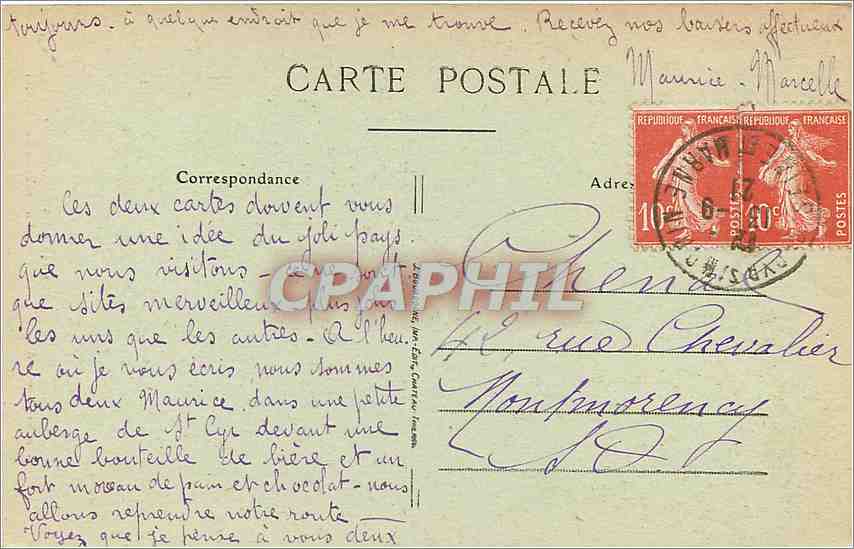 toujours - à quelque endroit que je me trouve. Recevez nos baisers affectueux
Maurice - Marcelle
CARTE POSTALE
REPUBLIQUE FRANÇAISE REPUBLIQUE FRANÇAISE
10c POSTES 10c POSTES
ET MARNE
Correspondance
Adres
Les deux cartes doivent vous
donner une idée du joli pays
que nous visitons -
que sites merveilleux plus jolis
les uns que les autres - A l'heu-
re où je vous écris, nous sommes
tous deux Maurice, dans une petite
auberge de St Cyr devant une
bonne bouteille de bière et un
fort morceau de pain et chocolat - nous
allons reprendre notre route
Voyez que je pense à vous deux
CPAPHIL
42, rue Chevalier
Montmorency
S O